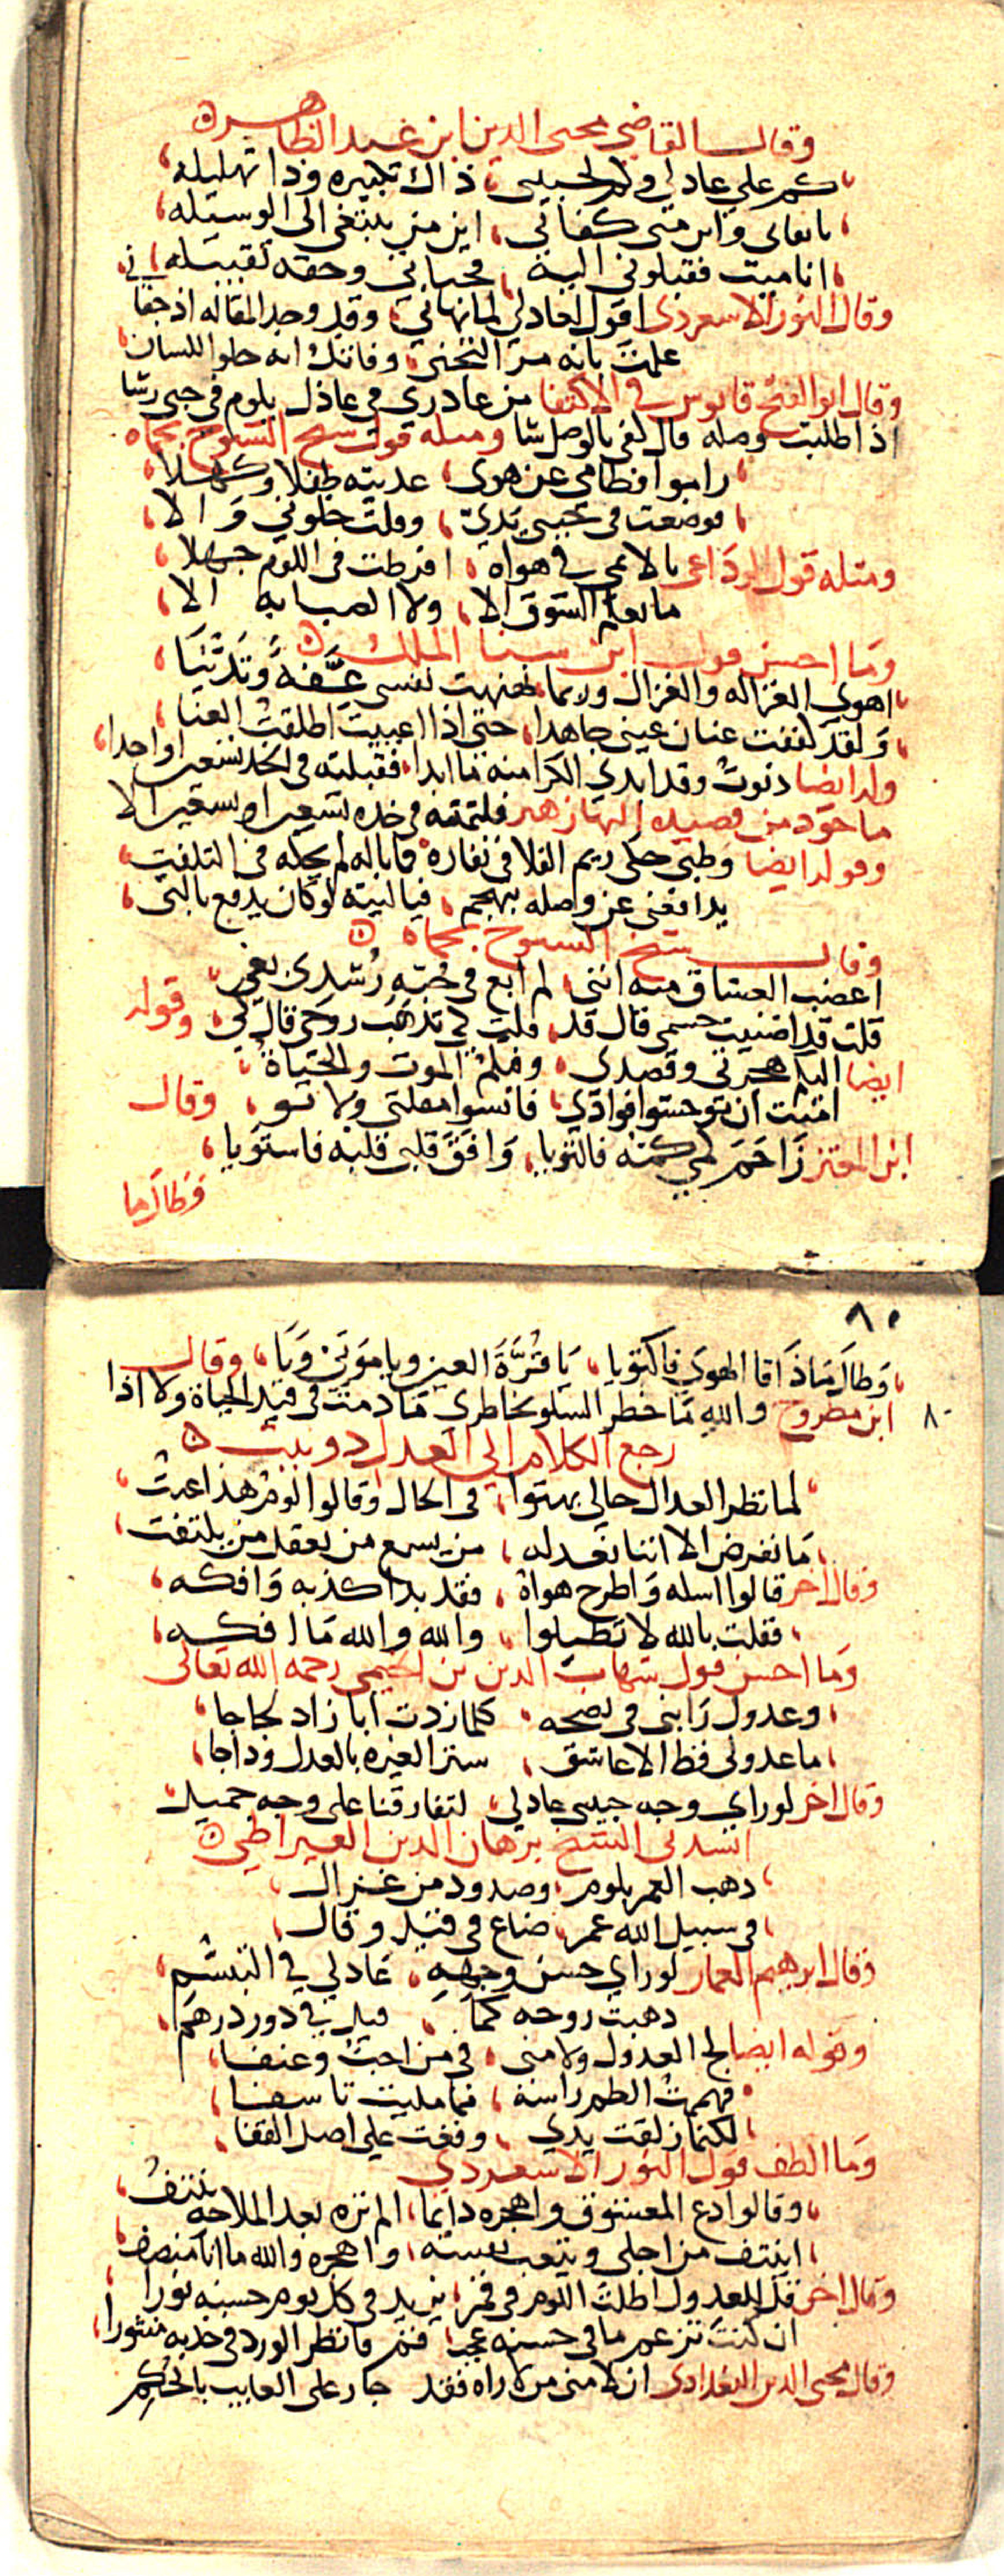 وقال القاضي محيى الدين ابن عبد الظاهر ه
كم على عاذلي وكم لحبيبي، ذاك تكبيره وذا تهليله،
من كفاني، اين من يبتغى الى الوسيله،
انا ميت فقبلوني اليه، فحياتي وحقه تقبيله
وقال النور الاسعردي اقول لعاذلي لما نهاني، وقد وجد المقاله اذ جفانى
علمت بانه مر التجني، وفاتك انه حلو اللسان
وقال ابو الفتح قابوس في الاكتفا من عاذري في عاذل يلوم في حبي رشا
اذا طلبت وصله قال كفى بالوصل شا ومثله قول شيخ الشيوخ بحماه
راموا فطامي عن هوى، غذيته طفلا وكهلا،
فوضعت في يدي، وقلت خلوني والا،
ومثله قول الوداعي يا لائمي في هواه، افرطت في اللوم جهلا،
ما يعلم الشوق الا، ولا الصبابه الا،
وما احسن قول ابن سنا الملك ه
اهوى الغزاله والغزال وربما، نهنهت نفسي عفة وتدينا،
ولقد كففت عنان عيني جاهدا، حتى اذا اعييت اطلقت العنا،
وله ايضا دنوت وقد ابدى الكرا منه ما ابدا، فقبلته في الخد تسعين او احدا،
ماخوذ من قصيده البها زهير فلثمته في خده تسعين او تسعين الا
وقوله ايضا وظبي حكى ريم الفلا في نفاره، فما باله لم يحكه في التلفت،
يدافعني عن وصله بهجم، فيا ليته لو كان يدفع بالتي،
وقال شيخ الشيوخ بحماه ه
اغضب العشاق منه انني، لم ابع في حبه رشدي بغي،
قلت قد اضنيت جسمي قال قد، قلت كي تذهب روحي قال كي، وقوله
ايضا اليكم هجرتي وقصدي، وفيكم الموت والحياة،
امنت ان توحشوا فوادي، فانسوا مقلتي ولا تو، وقال
ابن المعتز زاحم كمي كمه فالتويا، وافق قلبي قلبه فاستويا،
وطالما
٨٠
وطالما ذاقا الهوى فاكتويا، يا قرة العين ويا موتي ويا، وقال
ابن مطروح والله ما خطر السلو بخاطري ما دمت في قيد الحياة ولا اذا
٨٠
رجع الكلام الى العذل دو بيت ه
لما نظر العذال حالي بهتوا، في الحال وقالوا لوم هذا عنت،
ما نعرض الا اننا نعذله، من يسمع من يعقل من يلتفت،
وقال اخر قالوا اسله واطرح هواه، فقد بدا كذبه وافكه،
فقلت بالله لا تطيلوا، والله والله ما افكه،
وما احسن قول شهاب الدين بن الخيمي رحمه الله تعالى
وعذول رابني في نصحه، كلما زدت ابا زاد لجاجا،
ما عذولي قط الا عاشق، ستر الغيره بالعذل وداجا،
وقال اخر لو راى وجه حبيبي عاذلي، لتفارقنا على وجه جميل
انشدني الشيخ برهان الدين القيراطي ه
ذهب العمر بلوم، وصدود من غزال،
في سبيل الله عمر، ضاع في قيل وقال،
وقال ابرهيم المعمار لو راى حسن وجهه، عاذلي في التبسم،
ذهبت روحه كما، قيل في دور درهم،
وقوله ايضا لج العذول ولامنى، في من احب وعنفا،
فهممت الطم راسه، فما مليت تاسفا،
لكنما زلقت يدي، وقعت على اصل القفا،
وما الطف قول النور الاسعردي
وقالوا دع المعشوق واهجره دائما، الم تره بعد الملاحة ينتف،
اينتف من اجلي ويتعب نفسه، واهجره والله ما انا منصف،
وقال اخر قل للعذول اطلت اللوم في قمر، يزيد في كل يوم حسنه نورا
ان كنت تزعم ما في حسنه عجب، فقم فانظر الورد في خديه منثورا،
وقال محيى الدين البغدادى ان لامنى من لا راه فقد جار على الغايب بالحكم